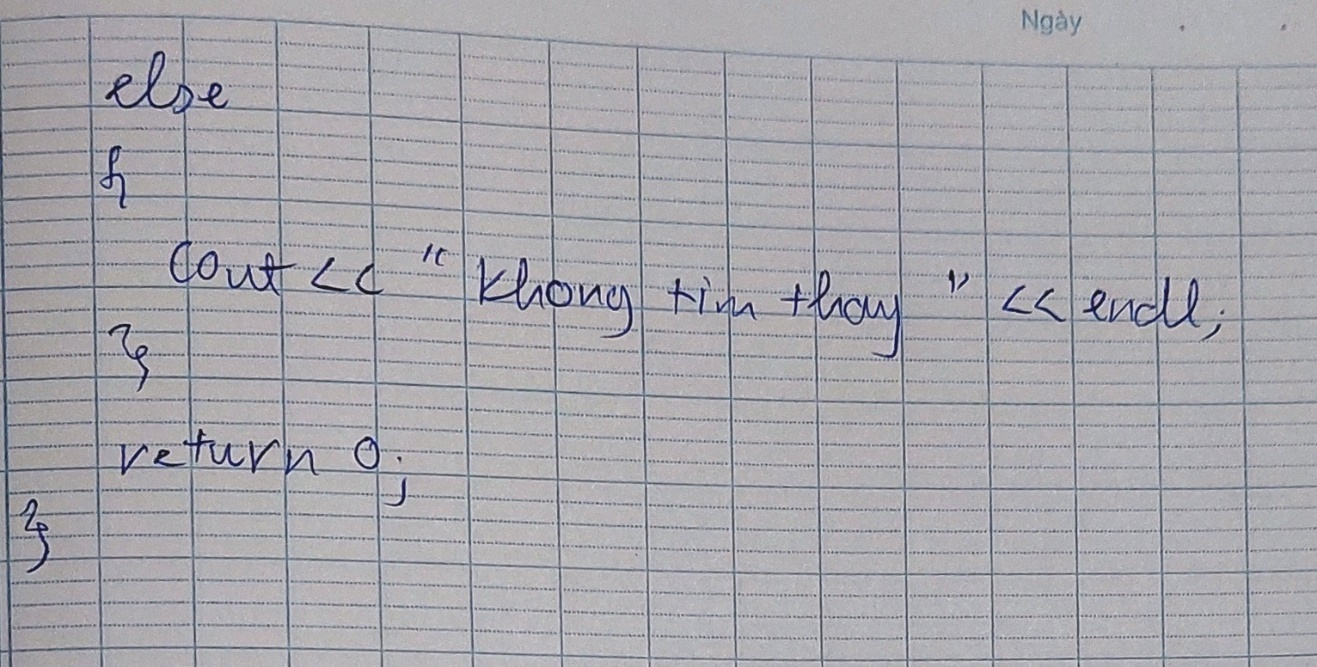 Ngày
else
{
cout << " Khong tim thay " << endl;
}
return 0;
}